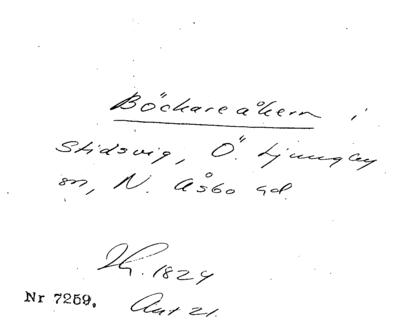 Böckareåkern i
Stidsvig, Ö. Ljungby
sn, N. Åsbo hd.
1824
Nr 7259.
Akt 21.